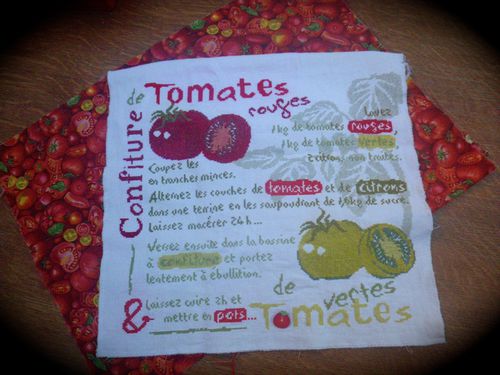 Confiture de
Tomates
rouges
Lavez
1kg de tomates rouges,
1kg de tomates vertes,
citrons non traités.
Coupez les
en tranches minces.
Alternez les couches de tomates et de citrons
dans une terrine en les saupoudrant de 1,6kg de sucre.
Laissez macérer 24h...
Versez ensuite dans la bassine
à confiture et portez
lentement à ébullition.
& Laissez cuire 2h et
mettre en pots...
de
vertes
Tomates